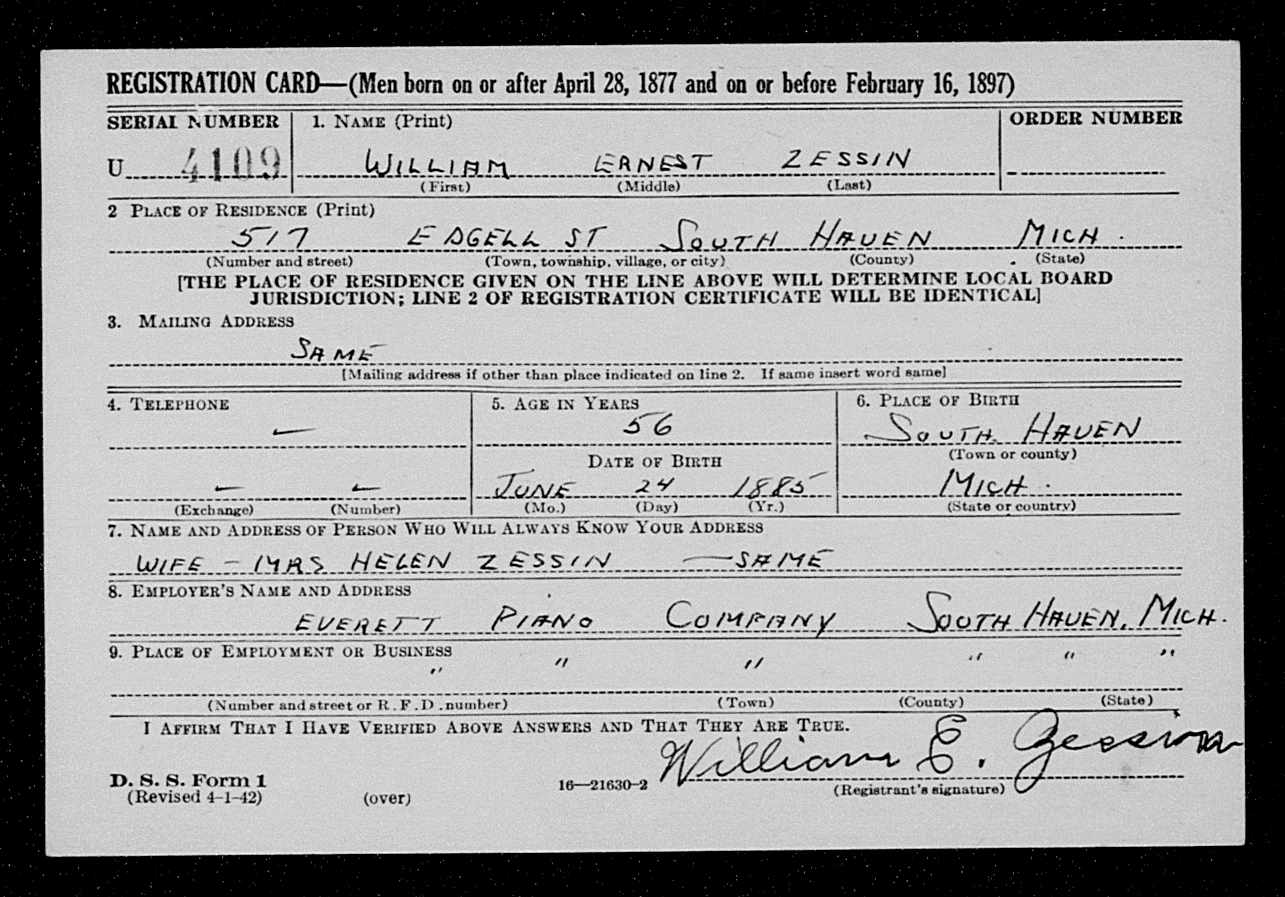 REGISTRATION CARD—(Men born on or after April 28, 1877 and on or before February 16, 1897)
SERIAL NUMBER 1. NAME (Print) ORDER NUMBER
U 4109 WILLIAM ERNEST ZESSIN
(First) (Middle) (Last)
2 PLACE OF RESIDENCE (Print)
517 EDGELL ST SOUTH HAVEN MICH.
(Number and street) (Town, township, village, or city) (County) (State)
[THE PLACE OF RESIDENCE GIVEN ON THE LINE ABOVE WILL DETERMINE LOCAL BOARD
JURISDICTION; LINE 2 OF REGISTRATION CERTIFICATE WILL BE IDENTICAL]
3. MAILING ADDRESS
SAME
[Mailing address if other than place indicated on line 2. If same insert word same]
4. TELEPHONE 5. AGE IN YEARS 6. PLACE OF BIRTH
— 56 SOUTH HAVEN
DATE OF BIRTH (Town or county)
— — JUNE 24 1885 MICH.
(Exchange) (Number) (Mo.) (Day) (Yr.) (State or country)
7. NAME AND ADDRESS OF PERSON WHO WILL ALWAYS KNOW YOUR ADDRESS
WIFE – MRS HELEN ZESSIN — SAME
8. EMPLOYER'S NAME AND ADDRESS
EVERETT PIANO COMPANY SOUTH HAVEN, MICH.
9. PLACE OF EMPLOYMENT OR BUSINESS
" " " " " "
(Number and street or R.F.D. number) (Town) (County) (State)
I AFFIRM THAT I HAVE VERIFIED ABOVE ANSWERS AND THAT THEY ARE TRUE.
William E. Zessin
D. S. S. Form 1 16—21630-2 (Registrant's signature)
(Revised 4-1-42) (over)